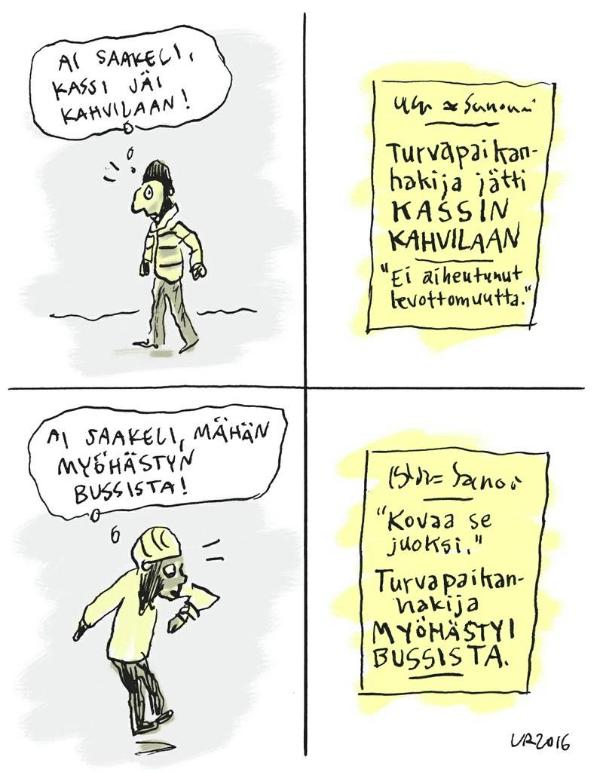 AI SAAKELI,
KASSI JÄI
KAHVILAAN!
Sanomi
Turvapaikan-
hakija jätti
KASSIN
KAHVILAAN
"Ei aiheutunut
levottomuutta."
AI SAAKELI, MÄHÄN
MYÖHÄSTYN
BUSSISTA!
"Kovaa se
juoksi."
Turvapaikan-
hakija
MYÖHÄSTYI
BUSSISTA.
VR2016